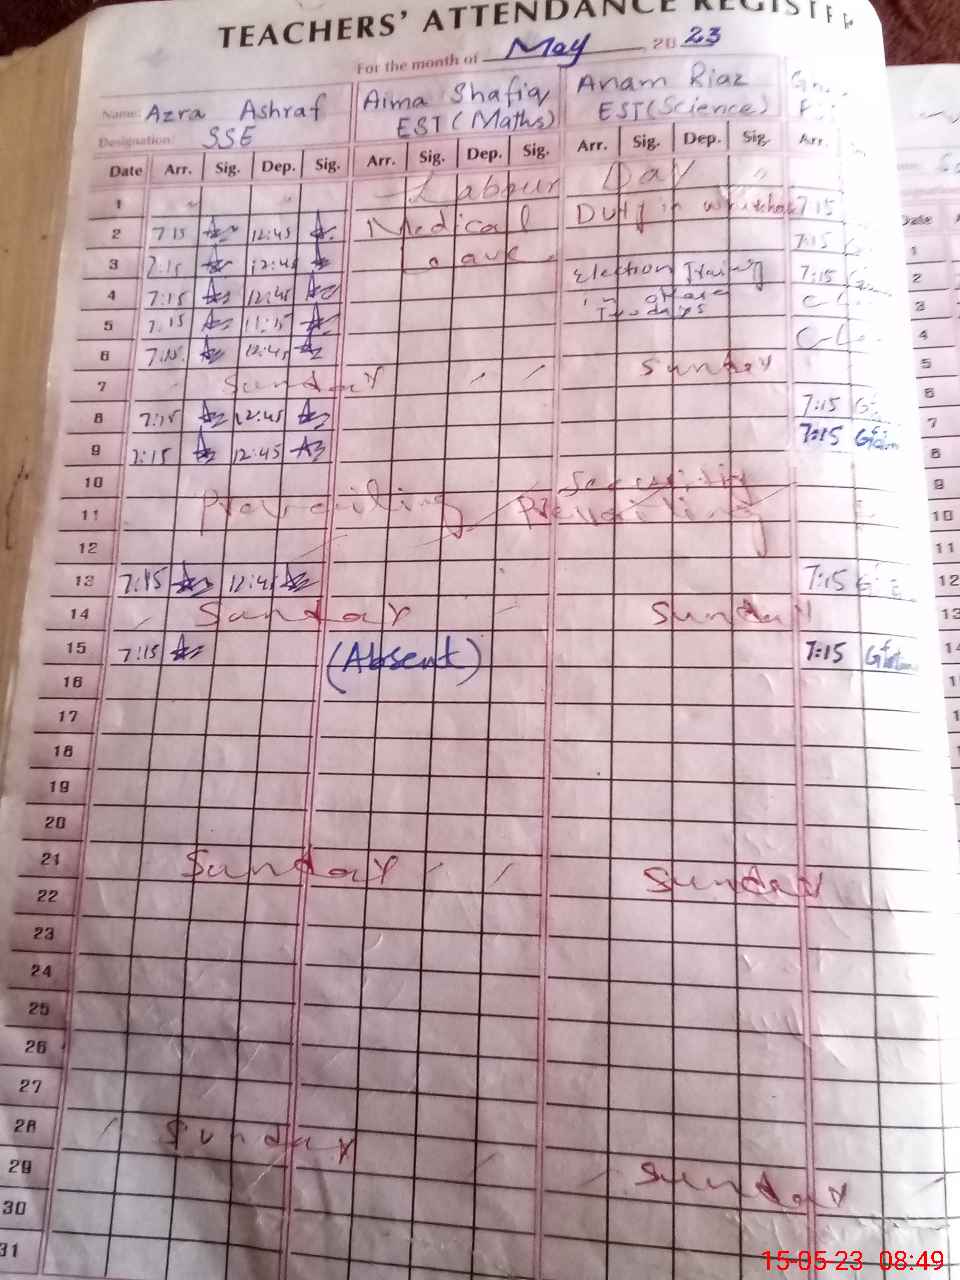 TEACHERS' ATTENDANCE REGISTER
For the month of May 2023
Name: Azra Ashraf Aima Shafiq Anam Riaz
Designation: SSE EST (Maths) EST (Science)
Date Arr. Sig. Dep. Sig. Arr. Sig. Dep. Sig. Arr. Sig. Dep. Sig. Arr.
1 Labour Day
2 7:15 12:45 Medical Duty in 7:15
3 7:15 12:45 Leave 7:15
4 7:15 12:45 Election Training 7:15
5 7:15 11:15 Two days
6 7:15 12:45
7 Sunday Sunday
8 7:15 12:45 7:15
9 7:15 12:45 7:15
10 Security
11 Prevailing Prevailing
12
13 7:15 12:45 7:15
14 Sunday Sunday
15 7:15 (Absent) 7:15
16
17
18
19
20
21 Sunday Sunday
22
23
24
25
26
27
28 Sunday Sunday
29
30
31
Date
1
2
3
4
5
6
7
8
9
10
11
12
13
15-05-23 08:49